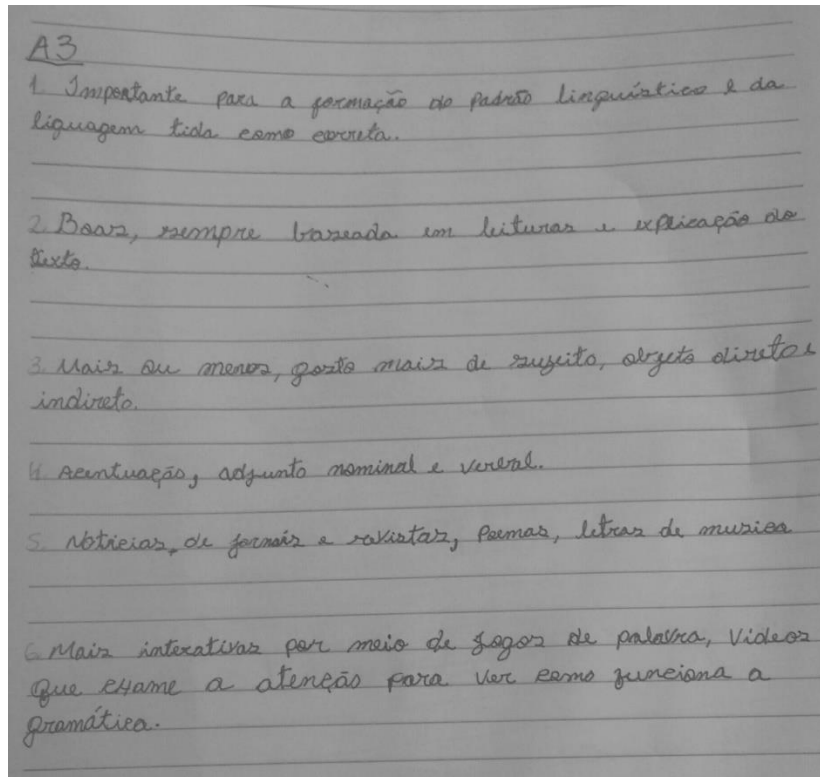 A3
1. Importante para a formação do padrão linguístico e da
liguagem tida como correta.
2. Boas, sempre baseada em leituras e explicação do
texto.
3. Mais ou menos, gosto mais de sujeito, objeto direto e
indireto.
4. Acentuação, adjunto nominal e verbal.
5. Notícias, de jornais e revistas, Poemas, letras de musica
6. Mais interativas por meio de jogos de palavra, Videos
que chame a atenção para ver como funciona a
gramática.